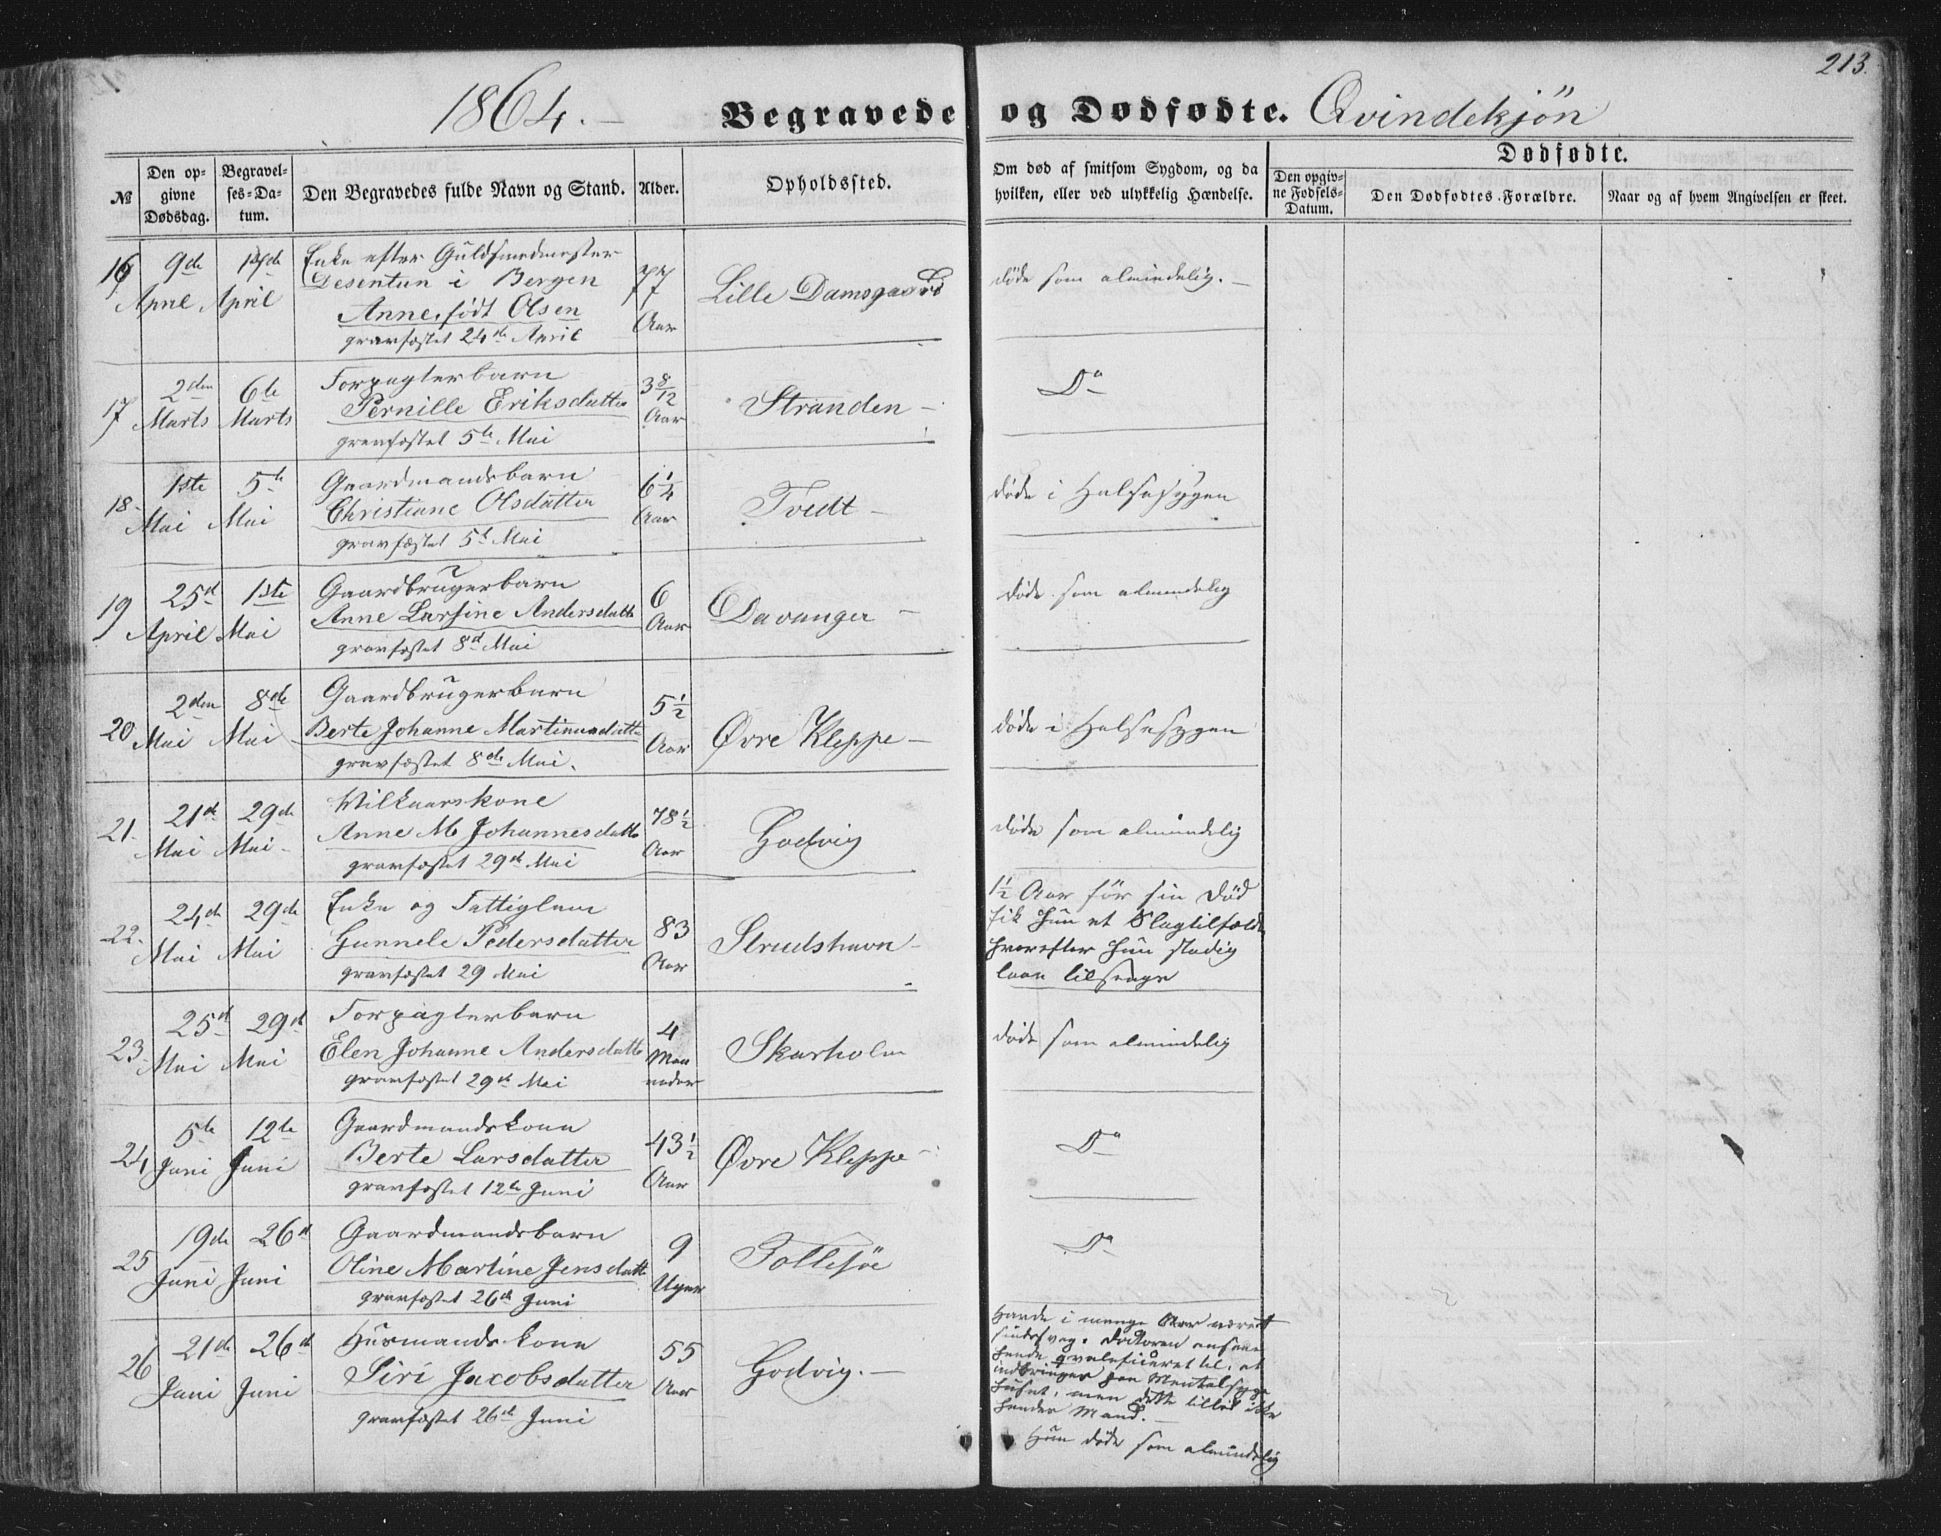 213.
1864. Begravede og Dødfødte. Qvindekjön
№ Den opgivne Dødsdag. Begravelses-Datum. Den Begravedes fulde Navn og Stand. Alder. Opholdssted. Om død af smitsom Sygdom, og da hvilken, eller ved ulykkelig Hændelse. Dødfødte.
Den opgivne Fødsels-Datum. Den Dødfødtes Forældre. Naar og af hvem Angivelsen er skeet.
16 9de April April Enke efter Guldsmedmester
Desentun i Bergen
Anne, født Olsen
gravfæstet 24de April
77 Aar Lille Damsgaard døde som almindelig.
17 2den Marts 6te Marts Forpagterbarn
Pernille Eriksdatter
gravfæstet 5te Mai
3 8/12 Aar Stranden Do
18 1ste Mai 5te Mai Gaardmandsbarn
Christiane Olsdatter
gravfæstet 5te Mai
6 1/4 Aar Tvedt døde i Halsesygen
19 25de April 1ste Mai Gaardbrugerbarn
Anne Larsine Andersdatter
gravfæstet 8de Mai
6 Aar Davanger døde som almindelig
20 2den Mai 8de Mai Gaardbrugerbarn
Berte Johanne Martinusdatter
gravfæstet 8de Mai.
5 1/2 Aar Øvre Kleppe døde i Halsesygen
21. 21de Mai 29de Mai Vilkaarskone
Anne M Johannesdatter
gravfæstet 29de Mai
78 1/2 Aar Hodvig døde som almindelig
22. 24de Mai 29de Mai Enke og Fattiglem
Gunnele Pedersdatter
gravfæstet 29 Mai
83 Aar Strudshavn
1 1/2 Aar før sin Død
fik hun et Slagtilfælde
hvorefter hun stadig
laae tilsengs
23. 25de Mai 29de Mai Forpagterbarn
Elen Johanne Andersdatter
gravfæstet 29de Mai
4 Maaneder Skarholm døde som almindelig
24 5te Juni 12te Juni Gaardmandskone
Berte Larsdatter
gravfæstet 12te Juni
43 1/2 Aar Øvre Kleppe Do
25 19de Juni 26de Juni Gaardmandsbarn
Oline Martine Jensdatter
gravfæstet 26de Juni
9 Uger Follesøe Do
26 21de Juni 26de Juni Husmandskone
Siri Jacobsdatter
gravfæstet 26de Juni
55 Aar Hodvig.
Havde i mange Aar været
sindssvag. Doktoren ansaae
hende qvalificeret til, at
indbringes paa Mentalsyge
huset, men dette tillod ikke
hendes Mand.
Hun døde som almindelig